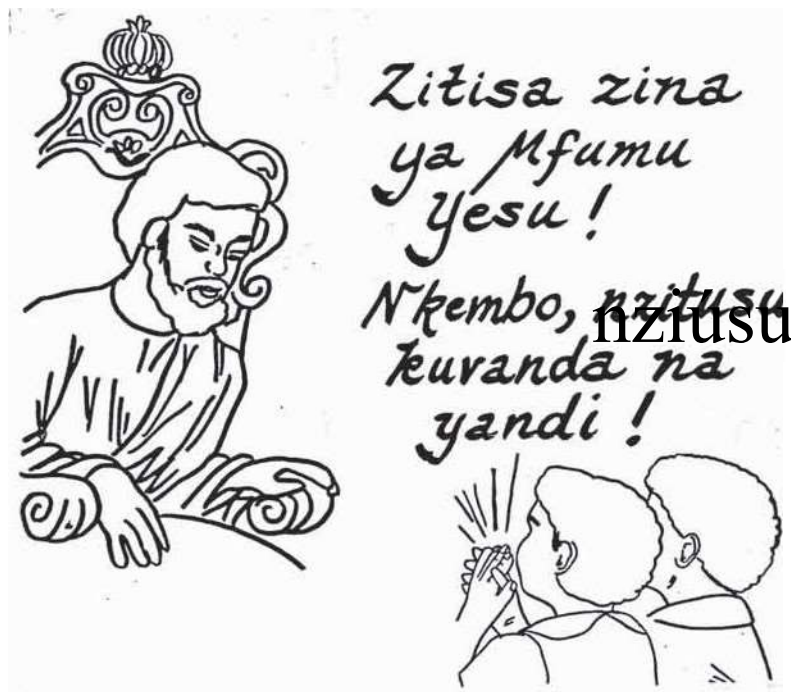 Zitisa zina
ya Mfumu
Yesu !
N'kembo, nzitusu
nziúsu
kuvanda na
yandi !